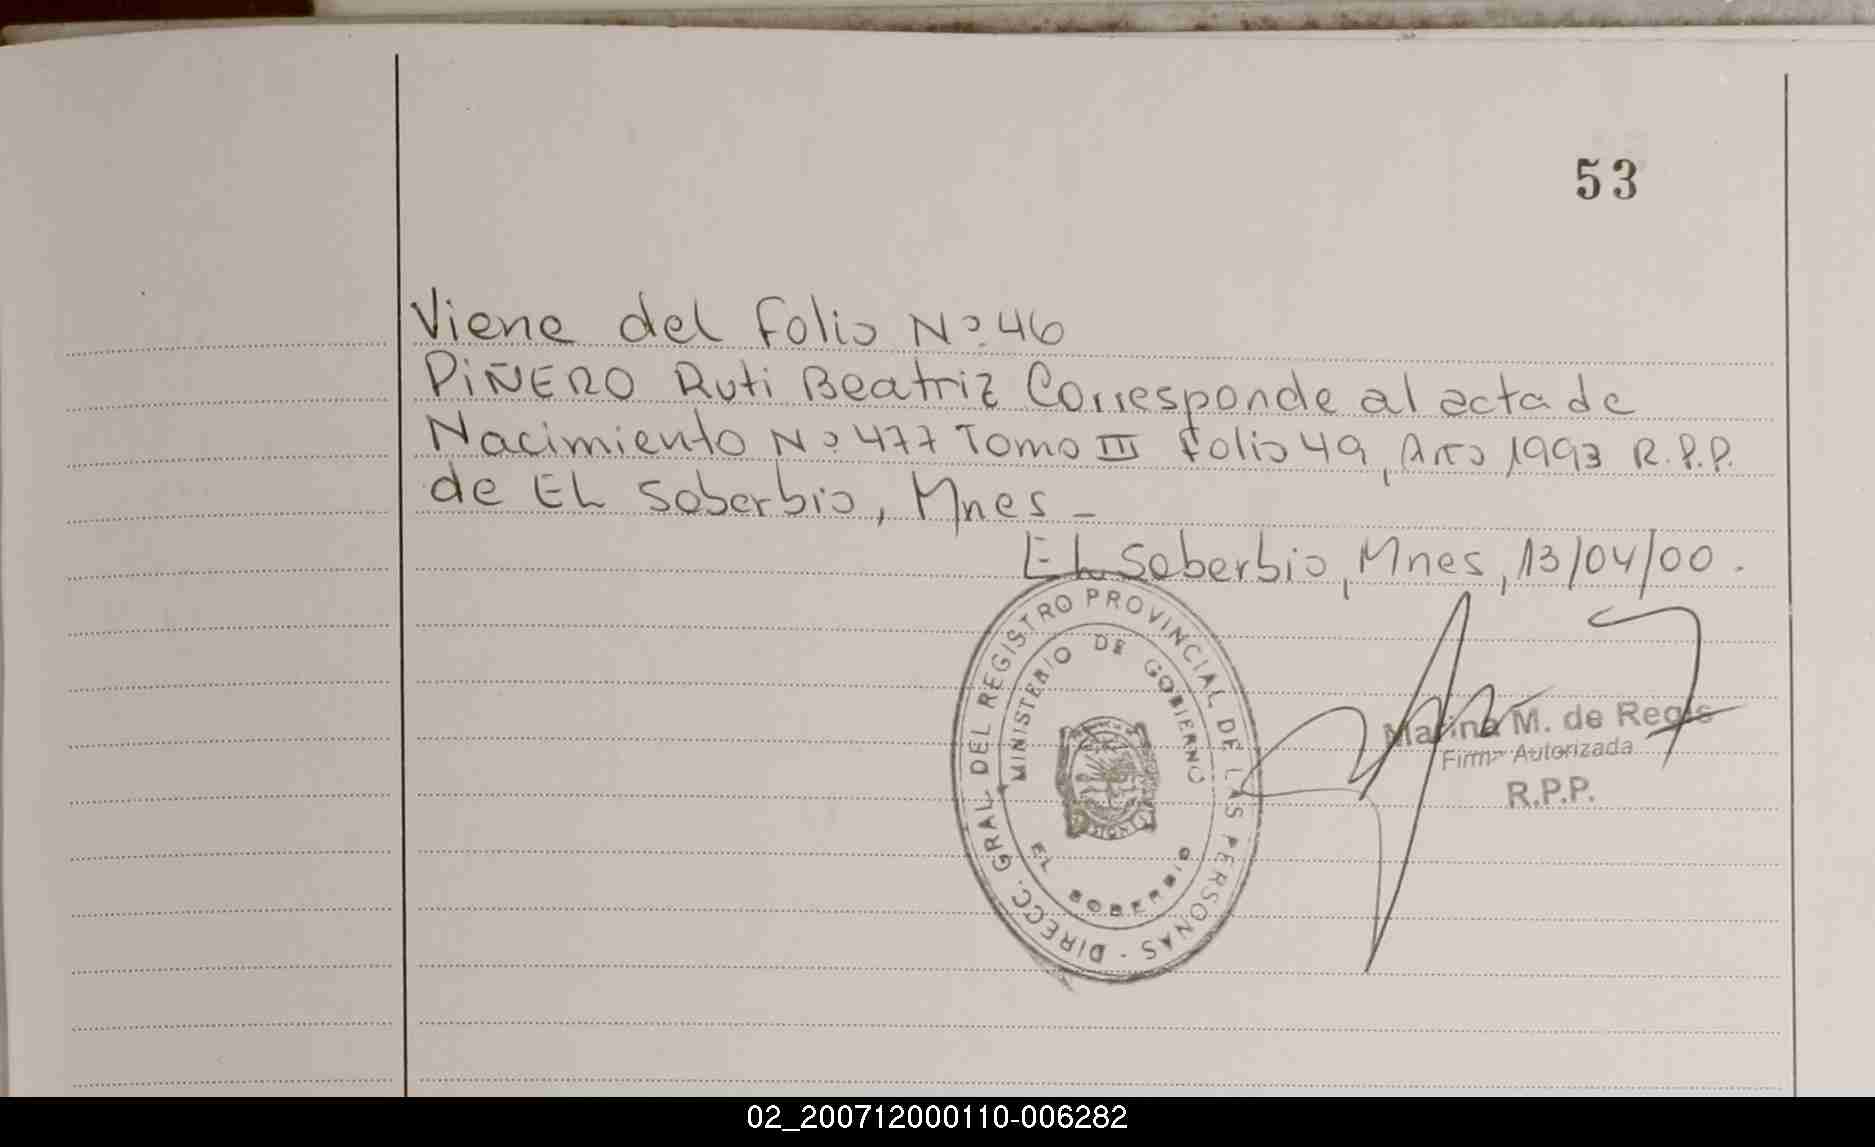 53
Viene del Folio Nº 46
PIÑERO Ruti Beatriz Corresponde al acta de
Nacimiento Nº 477 Tomo III folio 49, Año 1993 R.P.P.
de EL Soberbio, Mnes -
EL Soberbio, Mnes, 13/04/00.
DIRECC. GRAL. DEL REGISTRO PROVINCIAL DE LAS PERSONAS -
MINISTERIO DE GOBIERNO
EL SOBERBIO
Marina M. de Regis
Firma Autorizada
R.P.P.
02_200712000110-006282